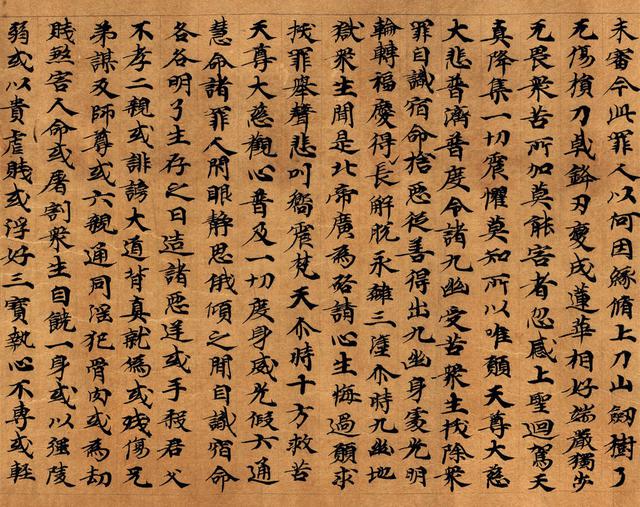 未審今此罪人以何因緣脩上刀山劍樹了
无傷損刀戟鋒刃變成蓮華相好端嚴獨步
无畏衆苦所加莫能害者忽感上聖迴駕天
真降集一切震懼莫知所以唯願天尊大慈
大悲普濟普度令諸九幽受苦衆生拔除衆
罪自識宿命捨惡從善得出九幽身處光明
輪轉福慶得長解脫永離三塗尒時九幽地
獄衆生聞是北帝廣爲啓請心生悔過願求
拔罪舉聲悲叫響震梵天尒時十方救苦
天尊大慈觀心普及一切度身威光假六通
慧命諸罪人閇眼靜思俄傾之間自識宿命
各各明了生存之日造諸惡逆或手殺君父
不孝二親或誹謗大道背真就僞或殘傷兄
弟謀及師尊或六親通同淫犯骨肉或爲劫
賊煞害人命或屠割衆生自饒一身或以强陵
弱或以貴虐賤或浮好三寶執心不專或輕